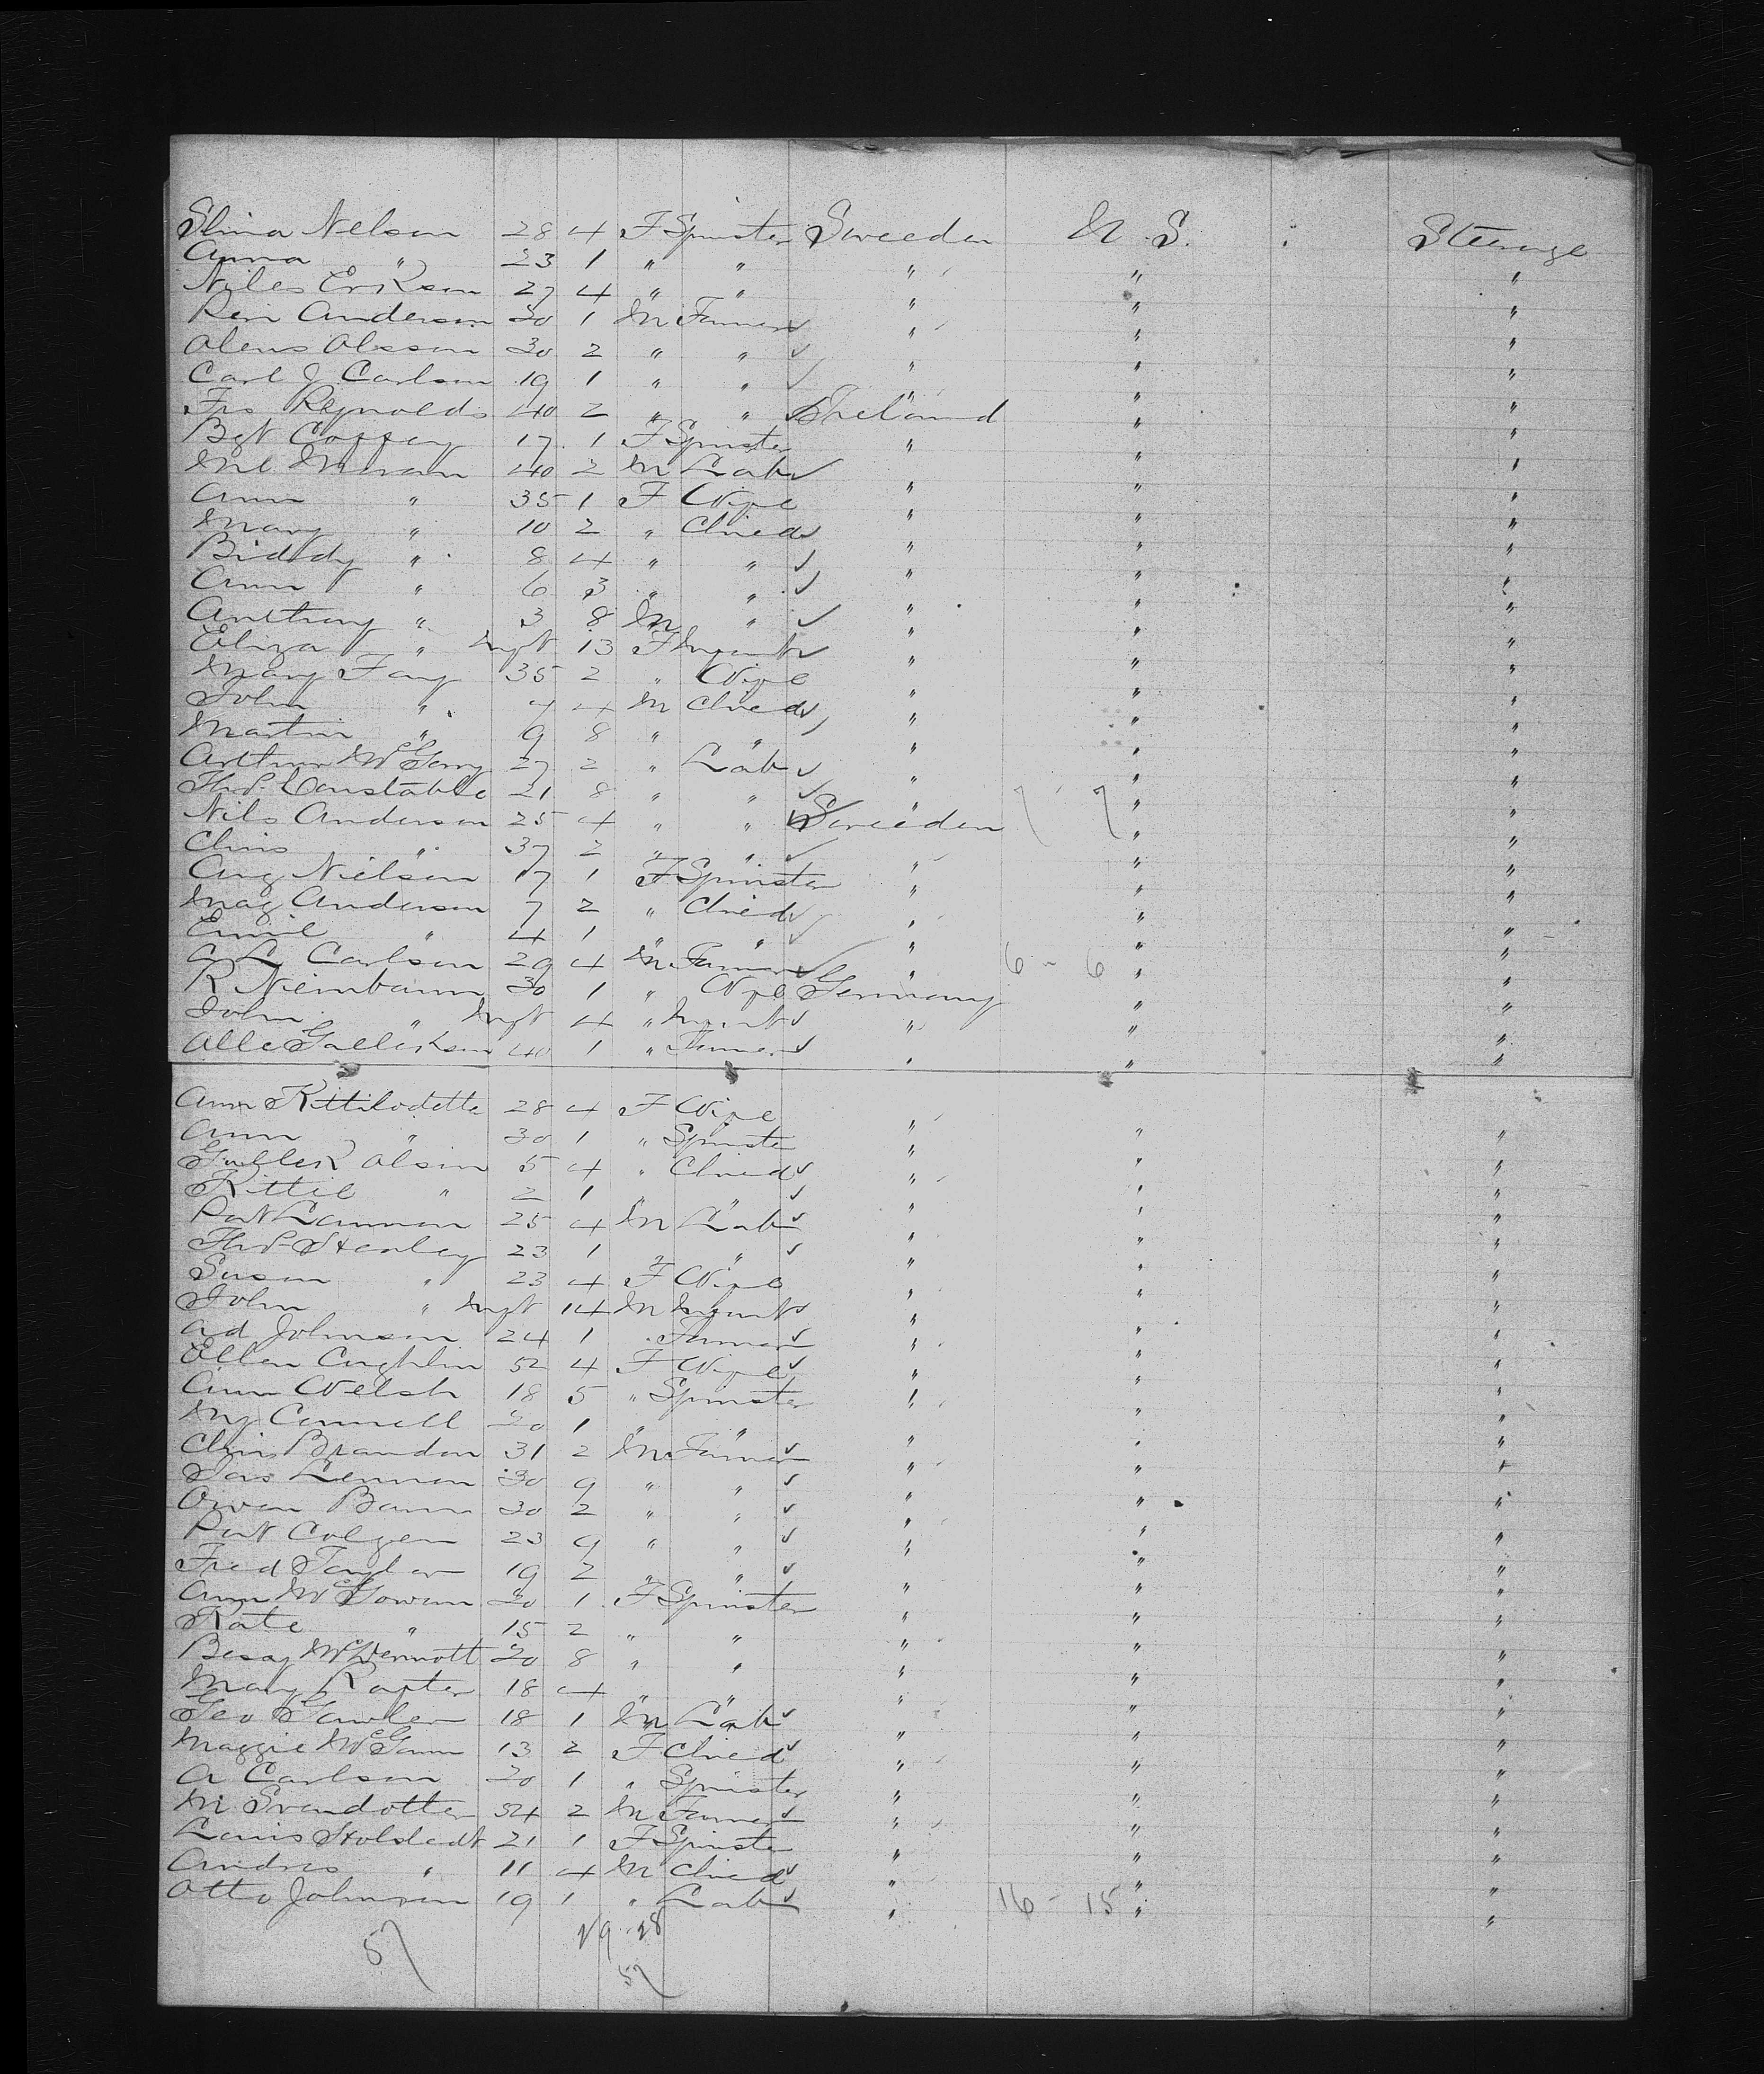 Slina Nelson 28 4 F Spinster Sweeden U. S. Steerage
Anna " 23 1 " " " " "
Niles Erikson 27 4 " " " " "
Anderson 30 1 M Farmer " " "
Olsson 30 2 " " " " "
Carl J Carlson 19 1 " " " " "
Frs Reynolds 40 2 " " Ireland " "
Bgt Coffey 17 1 F Spinster " " "
Ml Moran 40 2 M Lab " " "
Ann " 35 1 F Wife " " "
Mary " 10 2 " Child " " "
Biddy " 8 4 " " " " "
Ann " 6 3 " " " " "
Anthony " 3 8 M " " " "
Eliza " Inft 13 F Infant " " "
Mary Fay 35 2 " Wife " " "
John " 4 M Child " " "
Martin " 9 8 " " " " "
Arthur McGarry 27 2 " Lab " " "
Thos. Constable 21 8 " " " 7 - 7 " "
Nils Anderson 25 4 " " Sweeden " "
Chris " 37 2 " " " " "
Aug Nielson 17 1 F Spinster " " "
Mag Anderson 7 2 " Child " " "
Emil " 4 1 " " " " "
A L Carlson 29 4 M Farmer " 6 - 6 " "
R Neinbaum 30 1 " Wife Germany " "
John " Inft 4 " Infant " " "
Olle Gulleckson 40 1 " Farmer " " "
Ann Kittilsdette 28 4 F Wife " " "
Ann " 30 1 " Spinster " " "
Gulleck Olsin 5 4 " Child " " "
Kittil " 2 1 " " " " "
Pat Lannon 25 4 M Lab " " "
Thos Stanley 23 1 " " " " "
Susan " 23 4 F Wife " " "
John " Inft 14 M Infant " " "
Ad Johnson 24 1 " Farmer " " "
Ellen Cughlin 52 4 F Wife " " "
Ann Welsh 18 5 " Spinster " " "
My Connell 20 1 " " " " "
Chris Brandon 31 2 M Farmer " " "
Jas Lennon 30 9 " " " " "
Owen Bann 30 2 " " " " "
Pat Colgen 23 9 " " " " "
Fred Taylor 19 2 " " " " "
Ann McGowan 20 1 F Spinster " " "
Kate " 15 2 " " " " "
Bessy McDermott 20 8 " " " " "
Mary Rafter 18 4 " " " " "
Geo Gawler 18 1 M Lab " " "
Maggie McGann 13 2 F Child " " "
A Carlson 20 1 " Spinster " " "
M Svendotter 54 2 M Farmer " " "
Louis Holstedt 21 1 F Spinster " " "
Andres " 11 4 M Child " " "
Otto Johnson 19 1 " Lab " 16 - 15 " "
57 29 28
57